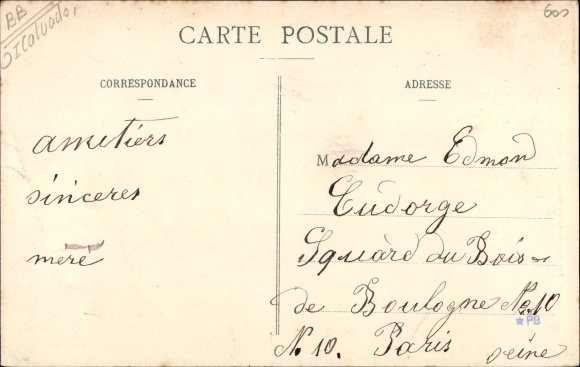 BB
Calvados
600
CARTE POSTALE
CORRESPONDANCE
ADRESSE
amitiers
sinceres
mere
Madame Edmond
Cudorge
Squard du Bois
de Boulogne No 10
PB
N. 10. Paris Seine